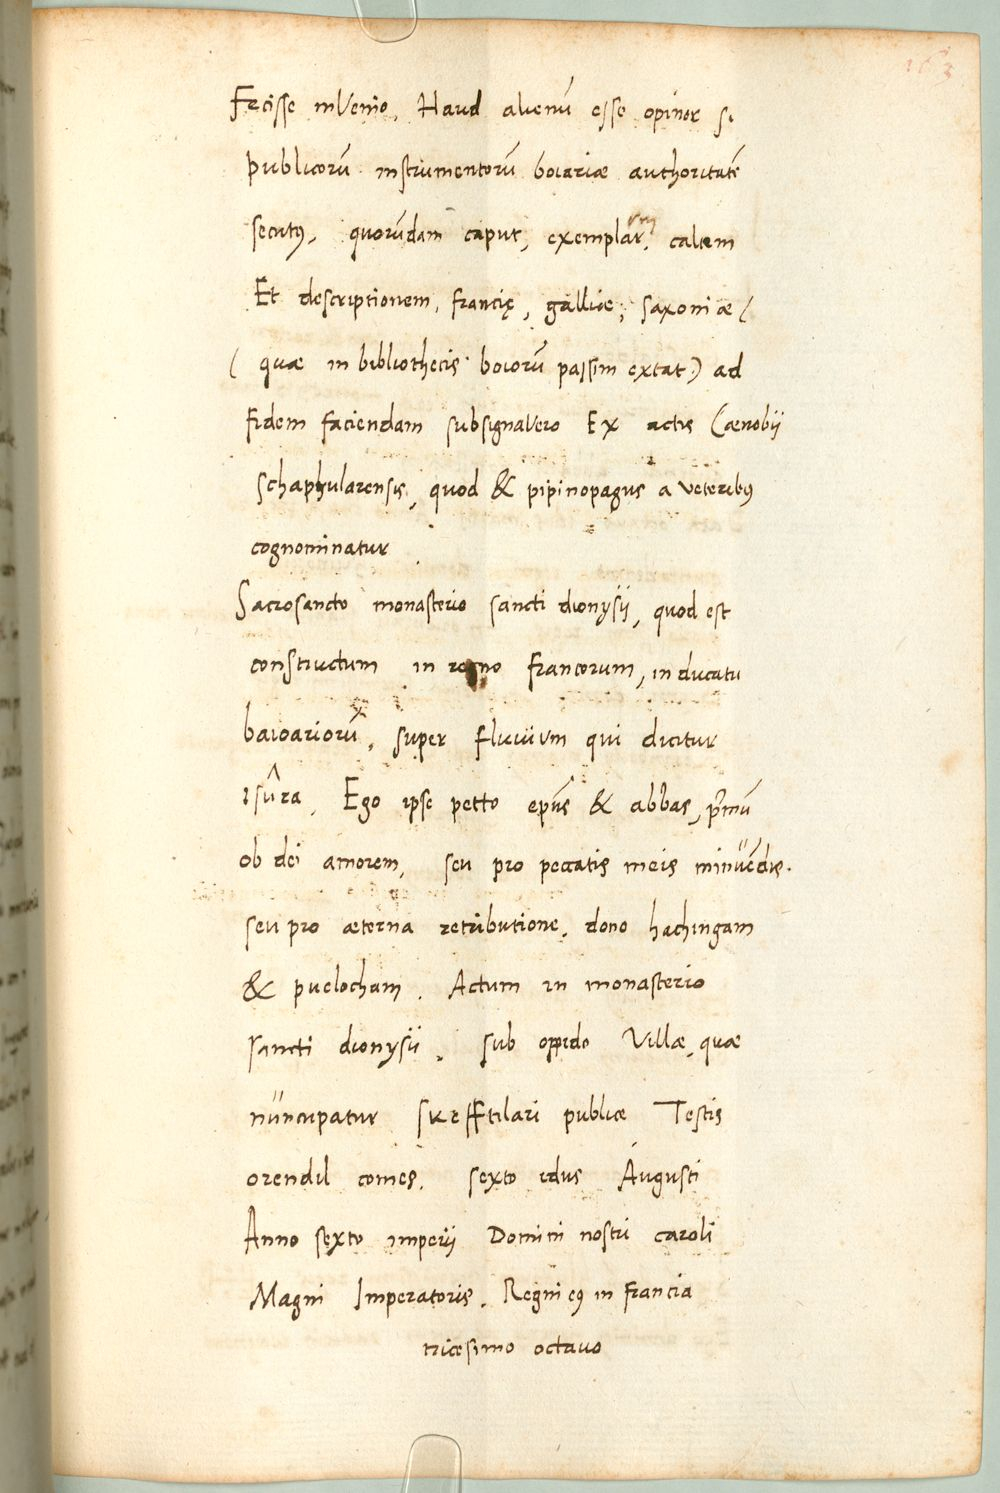 163
Fecisse inVenio, Haud alienū esse opinor si
publicorū instrumentorū boiariæ authoritatē
secutus, quorūdam caput, exemplarvm, calcem
Et descriptionem, francię, galliæ, saxoniæ (
( quæ in bibliothecis boiorū passim extat) ad
fidem faciendam subsignaVero Ex actis Cænobij
schaphularensis, quod & pipinopagus a veteribus
cognominatur
Sacrosancto monasterio sancti dionysij, quod est
constructum in regno francorum, in ducatu
baioariorū, super fluuium qui dicitur
isûra, Ego ipse petto epūs & abbas, prīmū
ob dei amorem, seu pro peccatis meis minuēdis.
seu pro æterna retributione, dono hachingam
& puelocham. Actum in monasterio
sancti dionysii, sub oppido Villæ, quæ
nuncupatur skefftilari publicæ Testis
orendil comes. sexto idus Augusti
Anno sexto imperij Domini nostri caroli
Magni Imperatoris. Regni eius in francia
tricesimo octauo